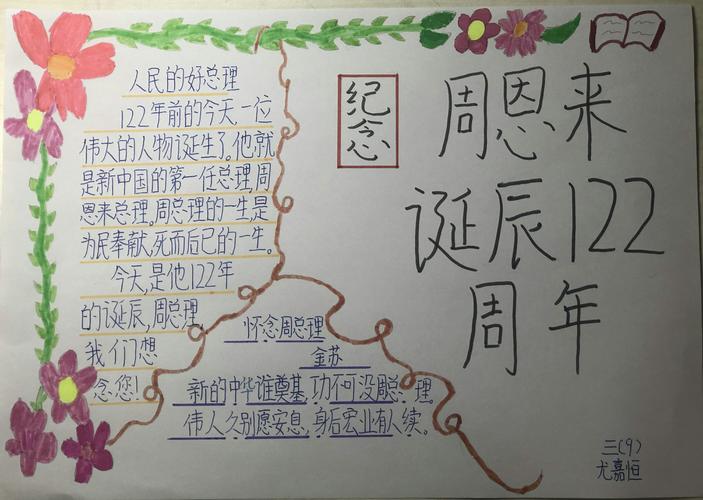 人民的好总理
122年前的今天,一位
伟大的人物诞生了。他就
是新中国的第一任总理,周
恩来总理。周总理的一生,是
为民奉献,死而后已的一生。
今天,是他122年
的诞辰,周总理,
我们想
念您!
纪念
周恩来
诞辰122
周年
怀念周总理
金苏
新的中华谁奠基,功不可没周总理。
伟人久别愿安息,身后宏业有人续。
三(9)
尤嘉恒